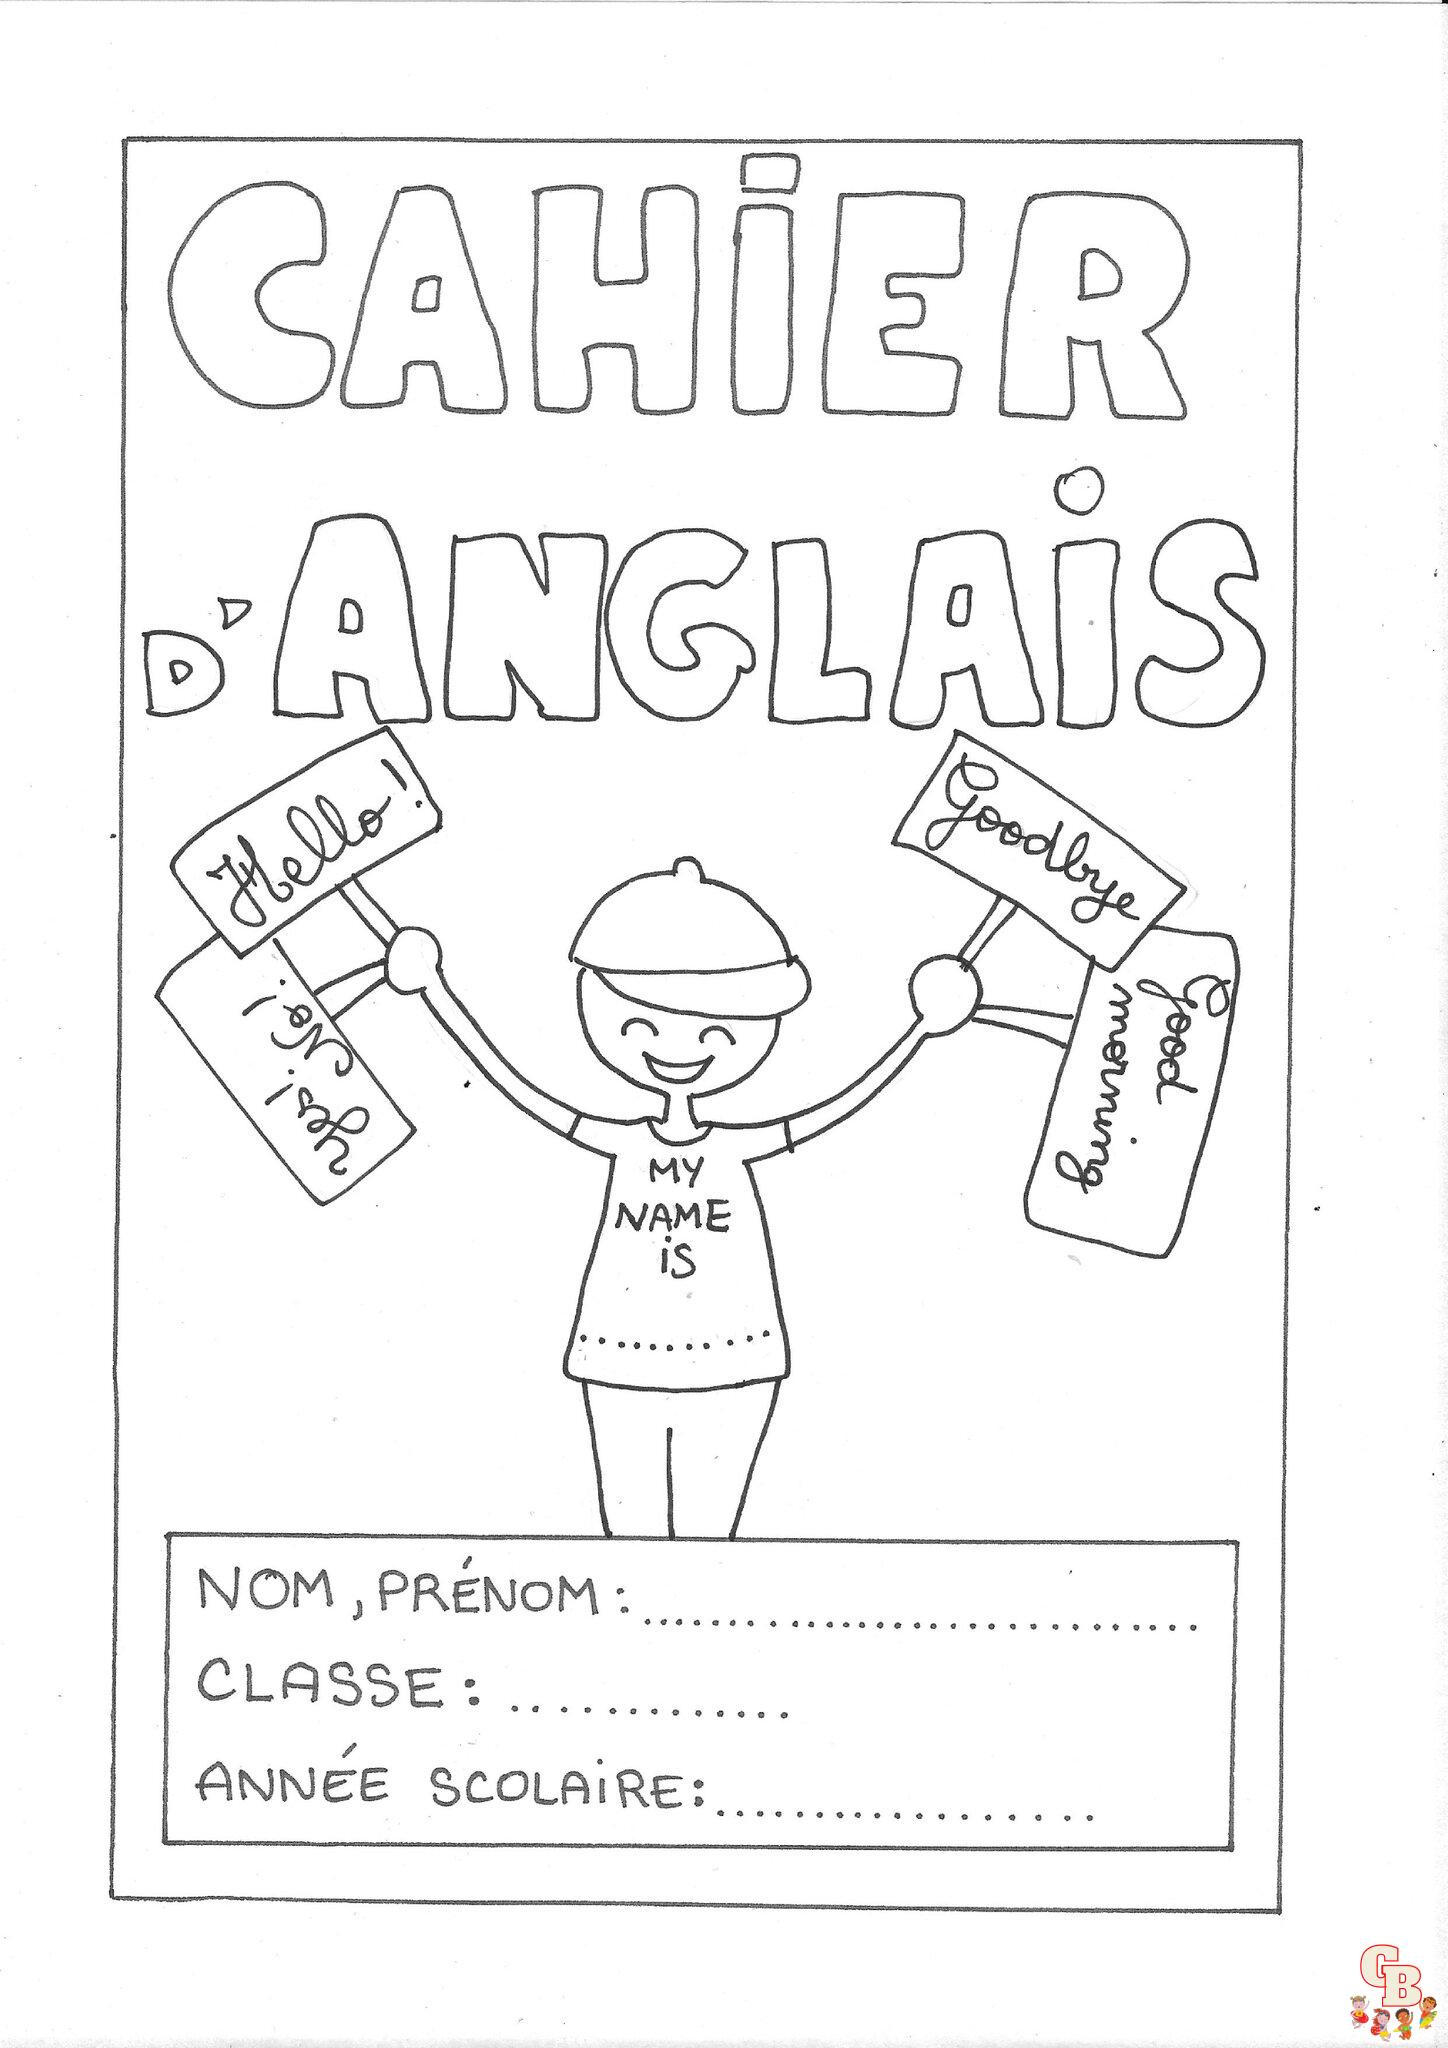 CAHiER
D'ANGLAiS
Hello!
Goodbye
Yes! No!
Good
morning
MY
NAME
iS
NOM, PRÉNOM : ..............................
CLASSE : .............
ANNÉE SCOLAiRE: .................
GB